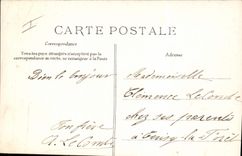 CARTE POSTALE
Correspondance
Adresse
Tous les pays étrangers n'acceptent pas la
correspondance au recto, se renseigner à la Poste
Bien le bonjour
Ton frère
Mademoiselle
Clemence LeComte
chez ses parents
à